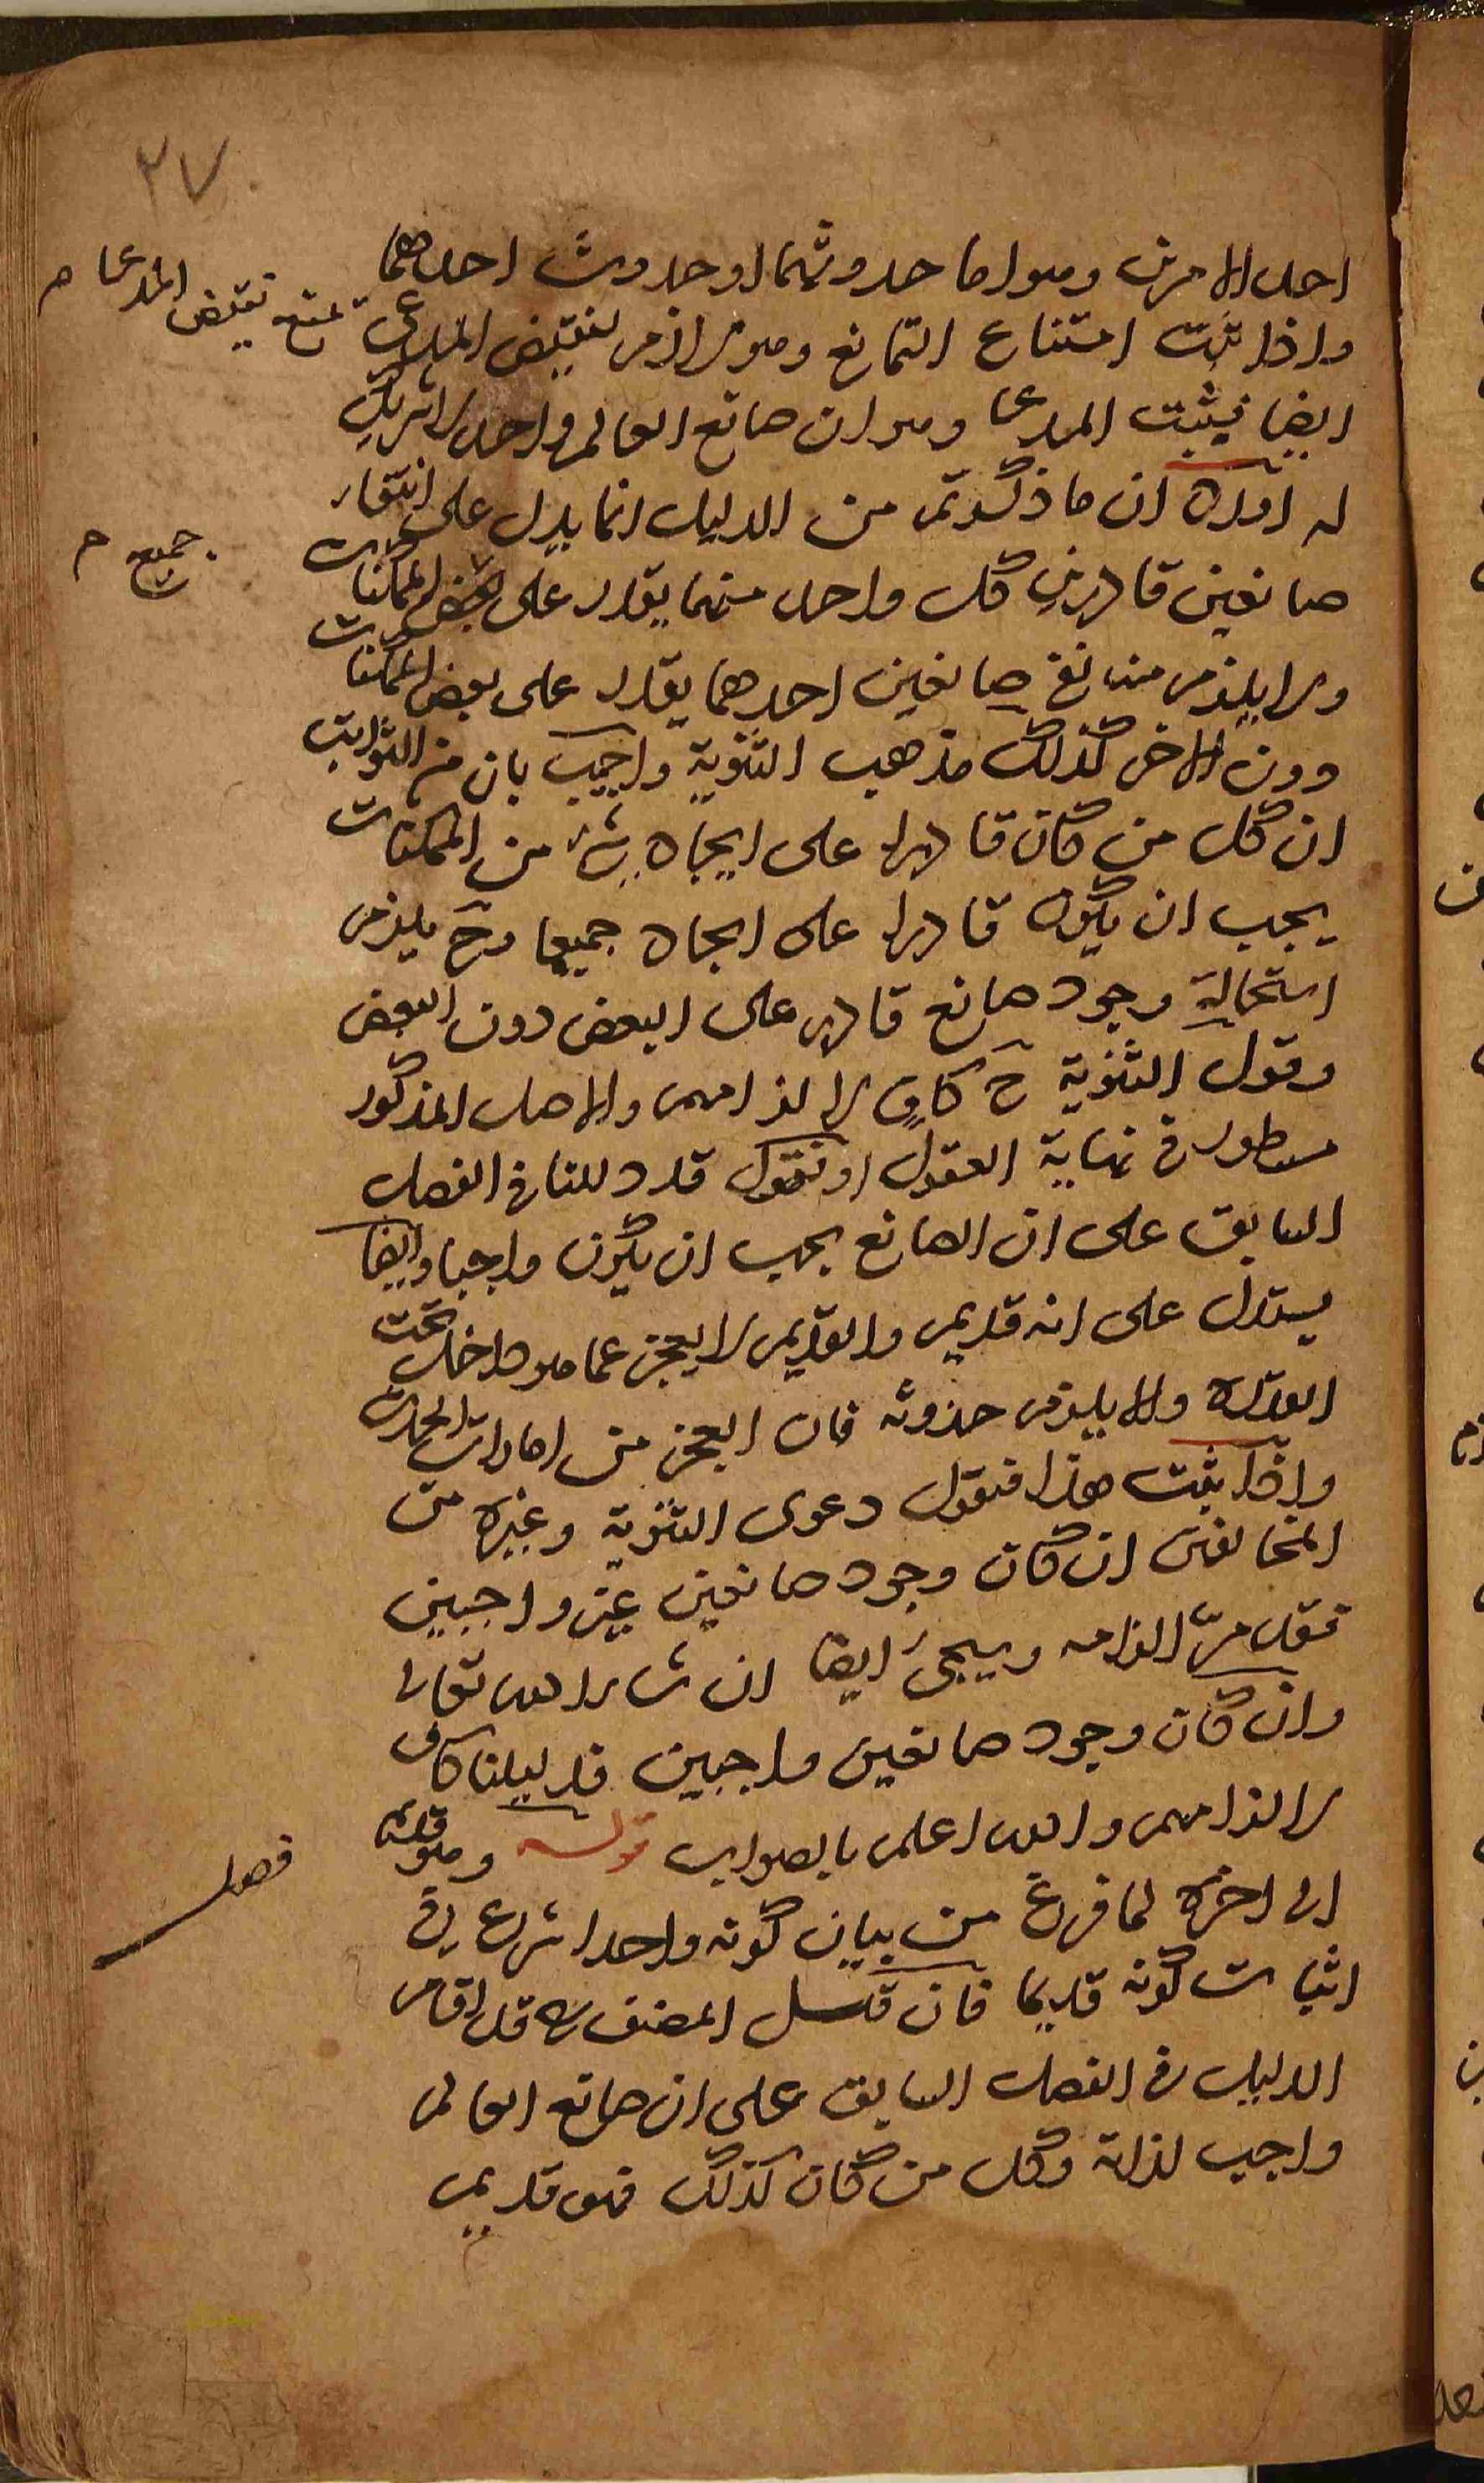 ٢٧
احد الامرين وهو اما حدوثهما او حدوث احدهما
واذا ثبت امتناع التمانع وهو لازم لنقيض المدعى يمتنع نقيض المدعى م
ايضا فيثبت المدعى وهو ان صانع العالم واحد لا شريك
له ان ما ذكرتم من الدليل انما يدل على انتفاء
صانعين قادرين كل واحد منهما يقدر على بعض الممكنات
جميع م
ولا يلزم منه نفي صانعين احدهما يقدر على بعض الممكنات
دون الاخر كذلك مذهب الثنوية واجيب بان من الثوابت
ان كل من كان قادرا على ايجاد شئ من الممكنات
يجب ان يكون قادرا على ايجاد جميعها وح يلزم
استحالة وجود صانع قادر على البعض دون البعض
وقول الثنوية ح كاف لالزامهم والاصل المذكور
مسطور في نهاية العقول او نقول قد دللنا في الفصل
السابق على ان الصانع يجب ان يكون واجبا وايضا
يستدل على انه قديم والقديم لا يعجز عما هو داخل تحت
القدرة والا يلزم حدوثه فان العجز من امارات الحدث
واذا ثبت هذا فنقول دعوى الثنوية وغيره من
المخالفين ان كان وجود صانعين غير واجبين
فقد مر الزامه وسيجئ ايضا ان شاء الله تعالى
وان كان وجود صانعين واجبين فدليلنا كاف
لالزامهم والله اعلم بالصواب قوله وهو قديم
فصل
الى اخره لما فرغ من بيان كونه واحدا شرع في
اثبات كونه قديما فان قيل المصنف ره قد اقام
الدليل في الفصل السابق على ان صانع العالم
واجب لذاته وكل من كان كذلك فهو قديم